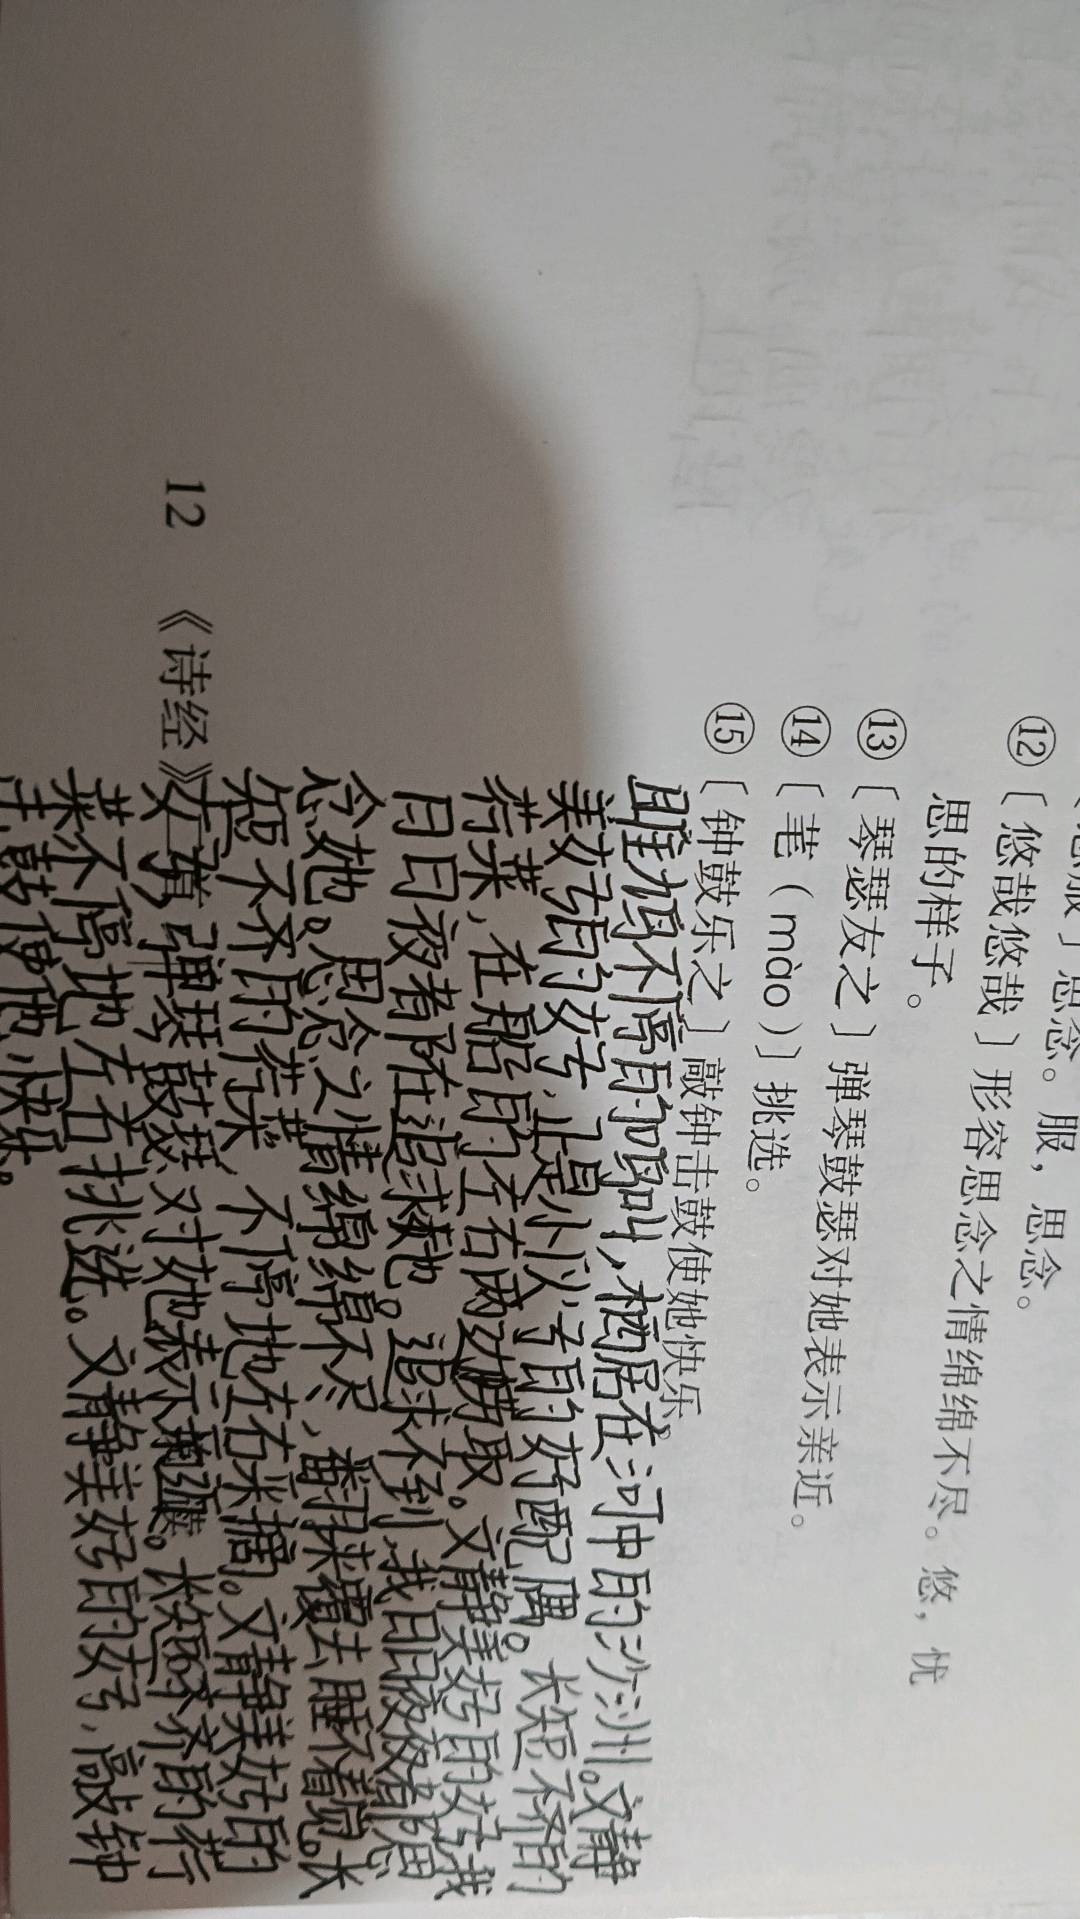 思服〕思念。服，思念。
⑫〔悠哉悠哉〕形容思念之情绵绵不尽。悠，忧
思的样子。
⑬〔琴瑟友之〕弹琴鼓瑟对她表示亲近。
⑭〔芼（mào）〕挑选。
⑮〔钟鼓乐之〕敲钟击鼓使她快乐。
雎鸠不停的鸣叫，栖居在河中的沙洲。文静
美好的女子，是小伙子的好配偶。长短不齐的
荇菜，在船的左右两边捞取。文静美好的女子，我
日日夜夜都在追求她。追求不到，我日日夜夜都思
念她。思念之情绵绵不尽，翻来覆去睡不着觉。长
短不齐的荇菜，不停地左右采摘。文静美好的
女子，弹琴鼓瑟对她表示亲近。长短不齐的荇
菜不停地左右挑选。文静美好的女子，敲钟
击鼓使她快乐。
12 《诗经》